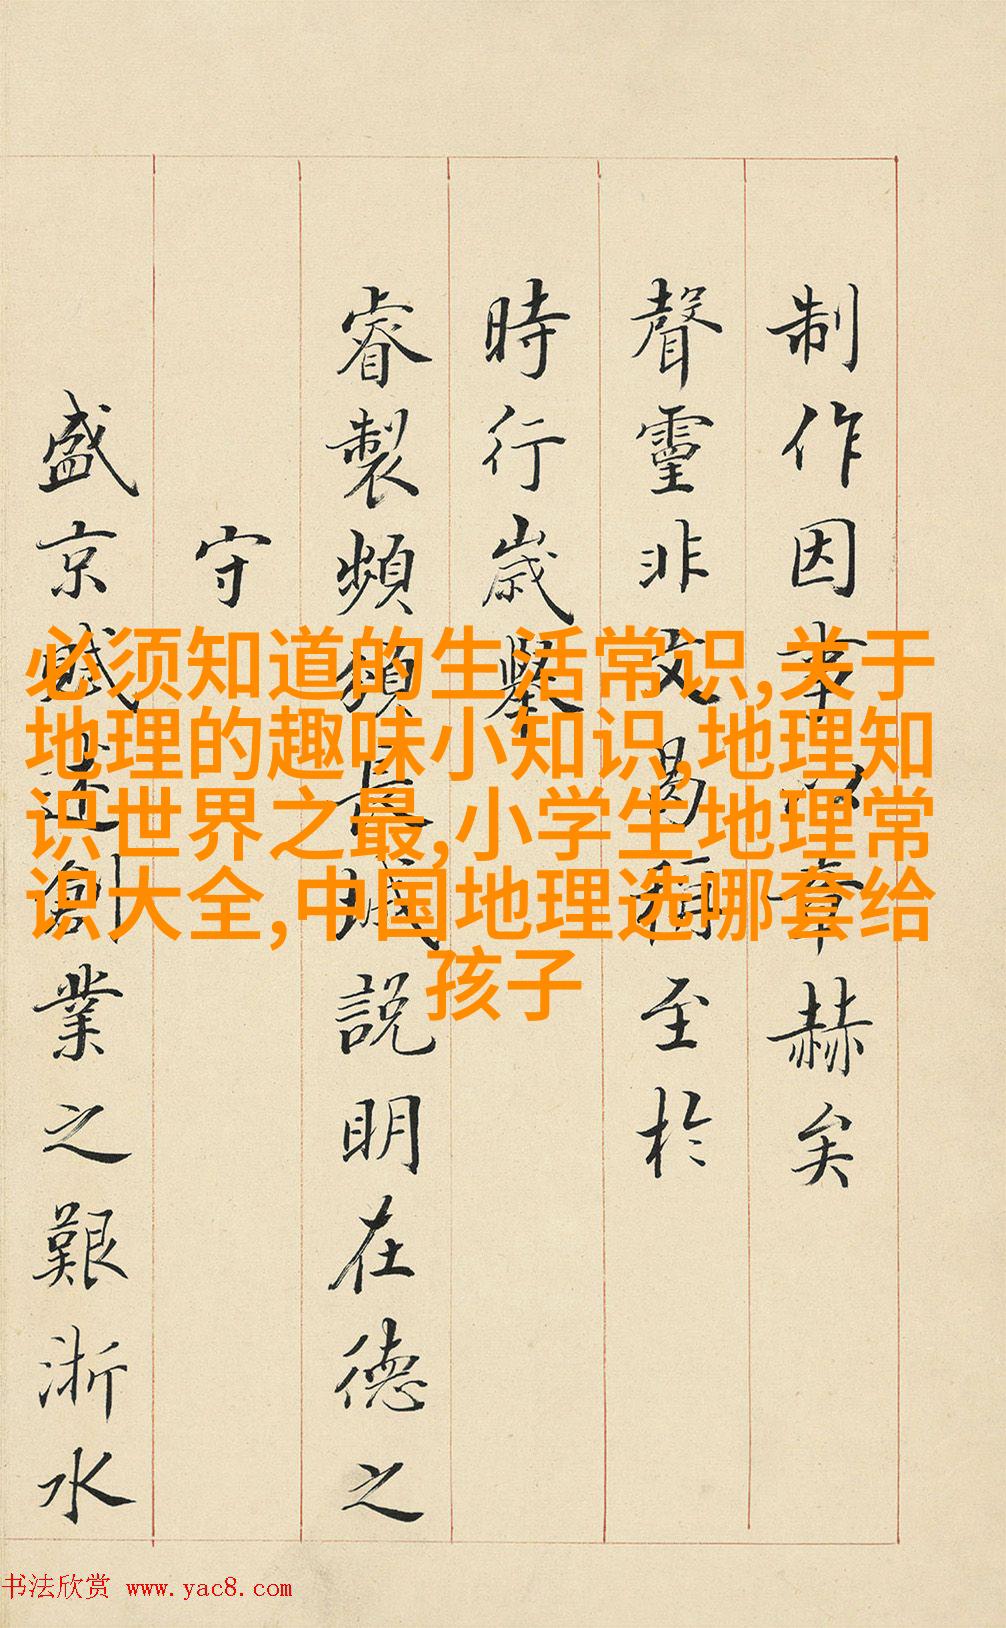 制作因革以章赫矣
聲靈非文曷稱至於
時行歲舉
睿製頻頒長城說明在德之
守
盛京賦述創業之艱浙水
必须知道的生活常识,关于
地理的趣味小知识,地理知
识世界之最,小学生地理常
识大全,中国地理选哪套给
孩子
书法欣赏 www.yac8.com